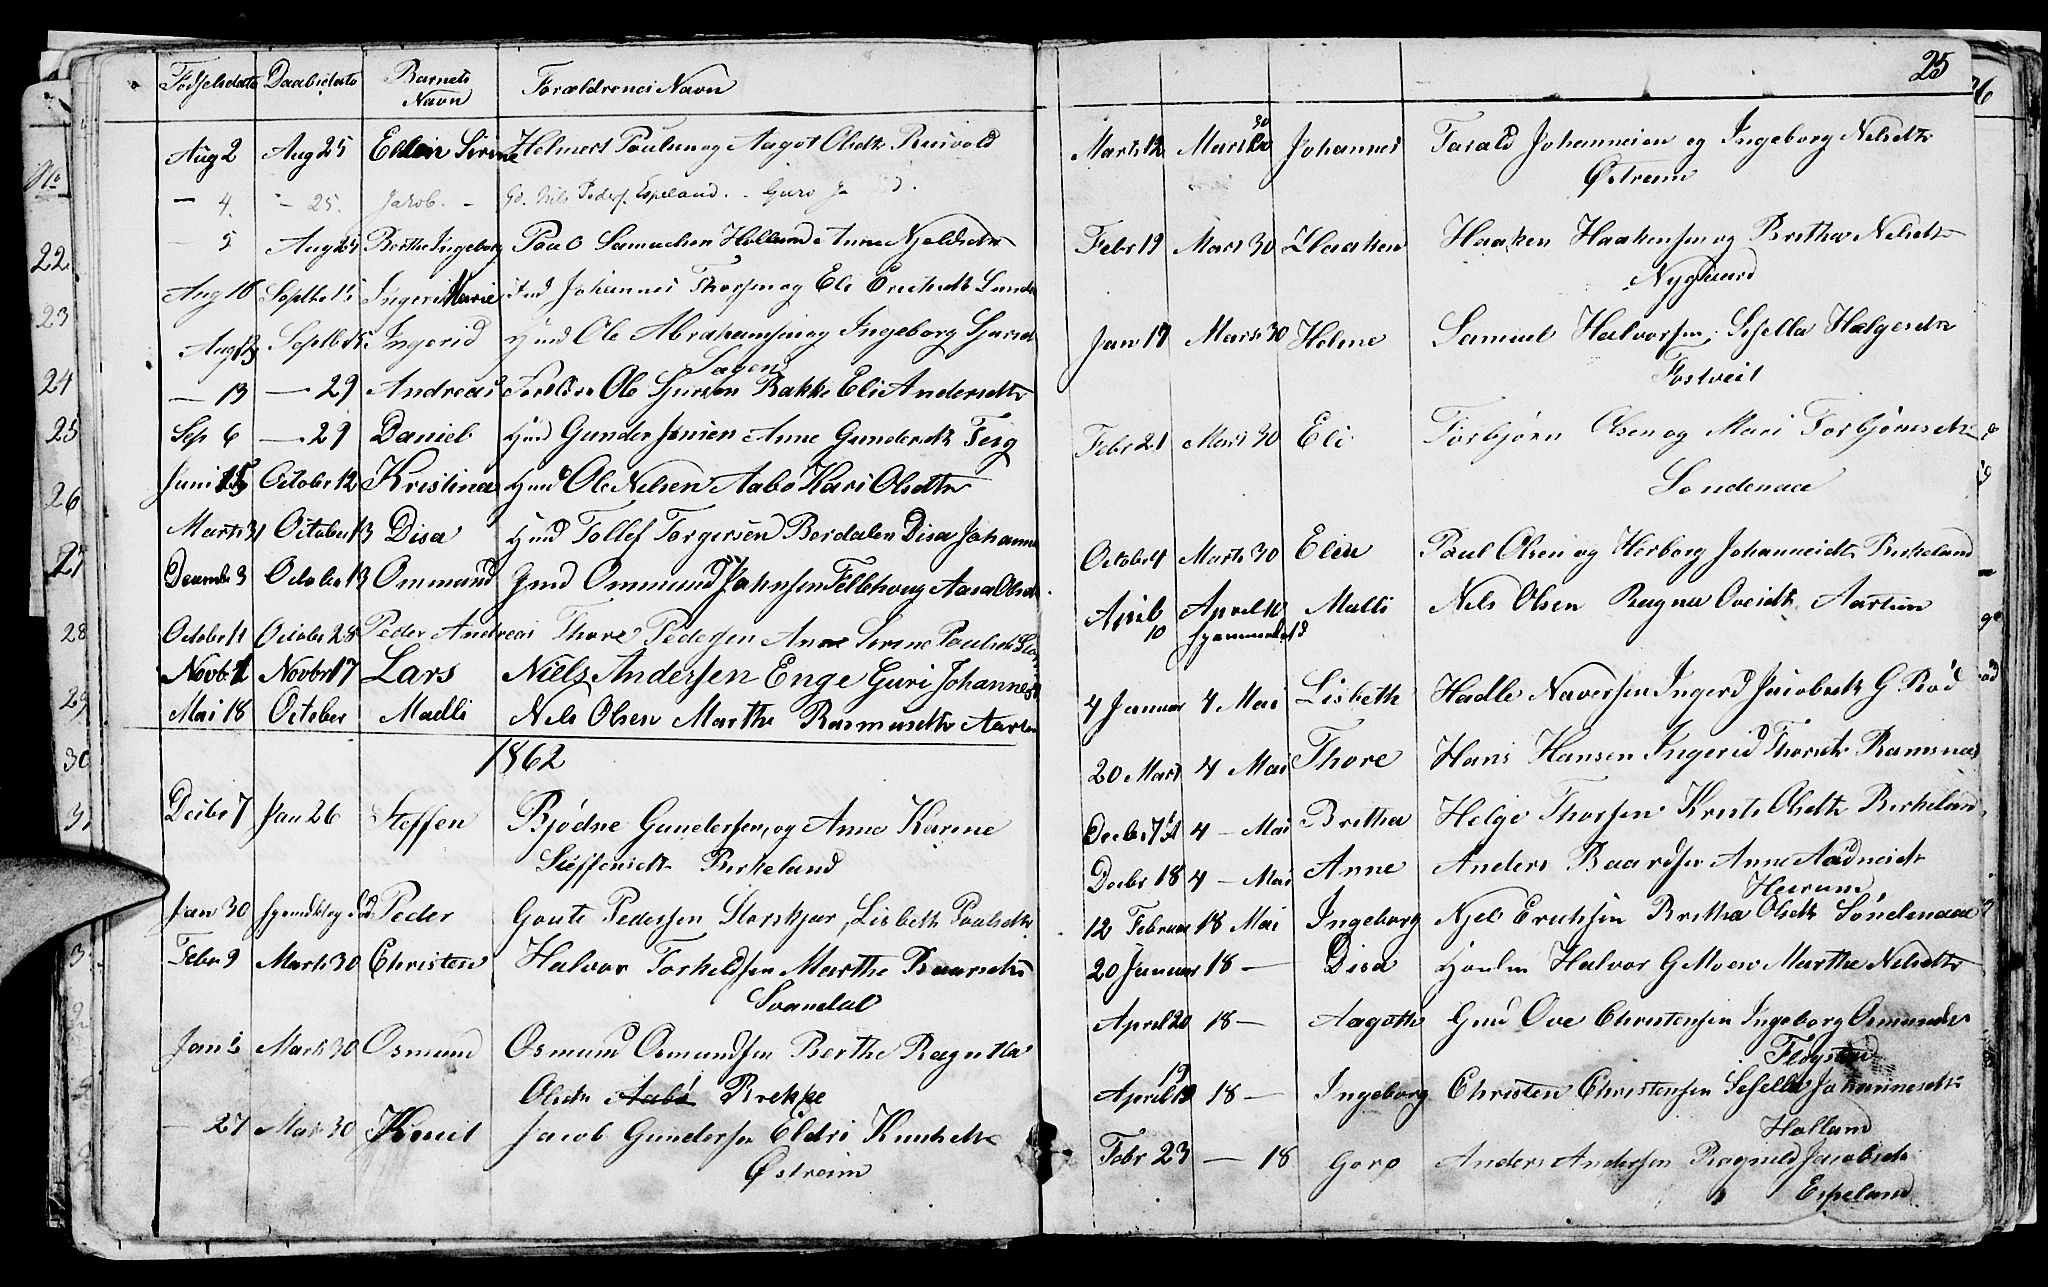 Fødselsdato Daabsdato Barnets Navn Forældrenes Navn
Aug 2 Aug 25 Ellen Serine Helmert Poulsen og Aagot Olsdtr
— 4. — 25. Jakob. Nils Peders. Espeland. Guro
— 5 Aug 25 Berthe Ingeborg Poul Samuelsen Holland Anne Njeldsdtr
Aug 10 Septbe 15 Ingeri Marie Ind Johannes Thorsen og Eli Erichsdtr
Aug 13 Septbe 15 Ingerid Hund Ole Abrahamsen og Ingeborg
Sagen
— 13 — 29 Andreas Ole Sjursen Bakke Eli Andersdtr
Sep 6 — 29 Daniel Hund Gunder Jensen Anne Gundersdtr Teig
Juni 15 October 12 Kristina Hund Ole Nelsen Aabø Kari Olsdtr
Marts 31 October 13 Disa Hund Tollef Torgersen Bordalen Disa Johanne
Decembe 3 October 13 Ommund Gmd Ommund Johnsen Tellehoug Aasa Olsdtr
October 11 October 28 Peder Andreas Thore Pedersen Anne Serine Poulsdtr
Novbr 1 Novbr 17 Lars Niells Andersen Enge Guri Johannes
Mai 18 October Madli Nels Olsen Marthe Rasmusdtr
1862
Decbr 7 Jan 26 Steffen Bjødne Gundersen, og Anne Karine
Steffensdtr Birkeland
Jan 30 Peder Goute Pedersen Storskjar, Lisbeth Poulsdtr
Febr 9 Marts 30 Christen Halvor Torkeldsen Marthe Baarsdtr
Svandal
Jan 5 Marts 30 Osmund Osmund Osmundsen Berthe Ragnilla
Olsdtr Aabø Brekke
— 27 Mar 30 Knut Jacob Gundersen Eldri Knutsdtr
Østreim
25
26
Marts 12 Marts 30 Johannes Tarald Johannesen og Ingeborg Nelsdtr
Østreim
Febr 19 Mart 30 Haaken Haaken Haakensen og Brithe Nelsdtr
Nygaard
Jan 17 Marts 30 Helene Samuel Halvorsen, Sesella Helgesdtr
Fostveit
Febr 21 Mart 30 Eli Torbjørn Olsen og Mari Torbjørnsdtr
Sondenaa
October 4 Marts 30 Elen Paul Olsen og Herborg Johannesdtr Birkeland
April 10 April 10 Malli Nels Olsen Ragna Ovesdtr Aartun
hjemmedøbt
4 Januar 4 Mai Lisbeth Hadle Naversen Ingerd Jacobsdtr G Rød
20 Mart 4 Mai Thore Hans Hansen Ingerid Thorsdtr Ramsnas
Decbr 7 4 — Mai Britha Helge Thorsen Kristi Olsdtr Birkeland
Decbr 18 4 — Mai Anne Anders Baardsen Anne Aadnesdtr
Heerum
12 Februar 18 Mai Ingeborg Njel Eriksen Britha Olsdtr Søndenaa
20 Januar 18 — Disa Halvor G Moen Marthe Nelsdtr
April 20 18 — Aagothe Gmd Ove Christensen Ingeborg Osmunds
Fløgstad
April 19 18 — Ingeborg Christen Christensen Sesella Johannesdtr
Holland
Febr 23 — 18 Goro Anders Andersen Ragnild Jacobsdtr
Espeland
22
23
24
25
26
27
28
29
30